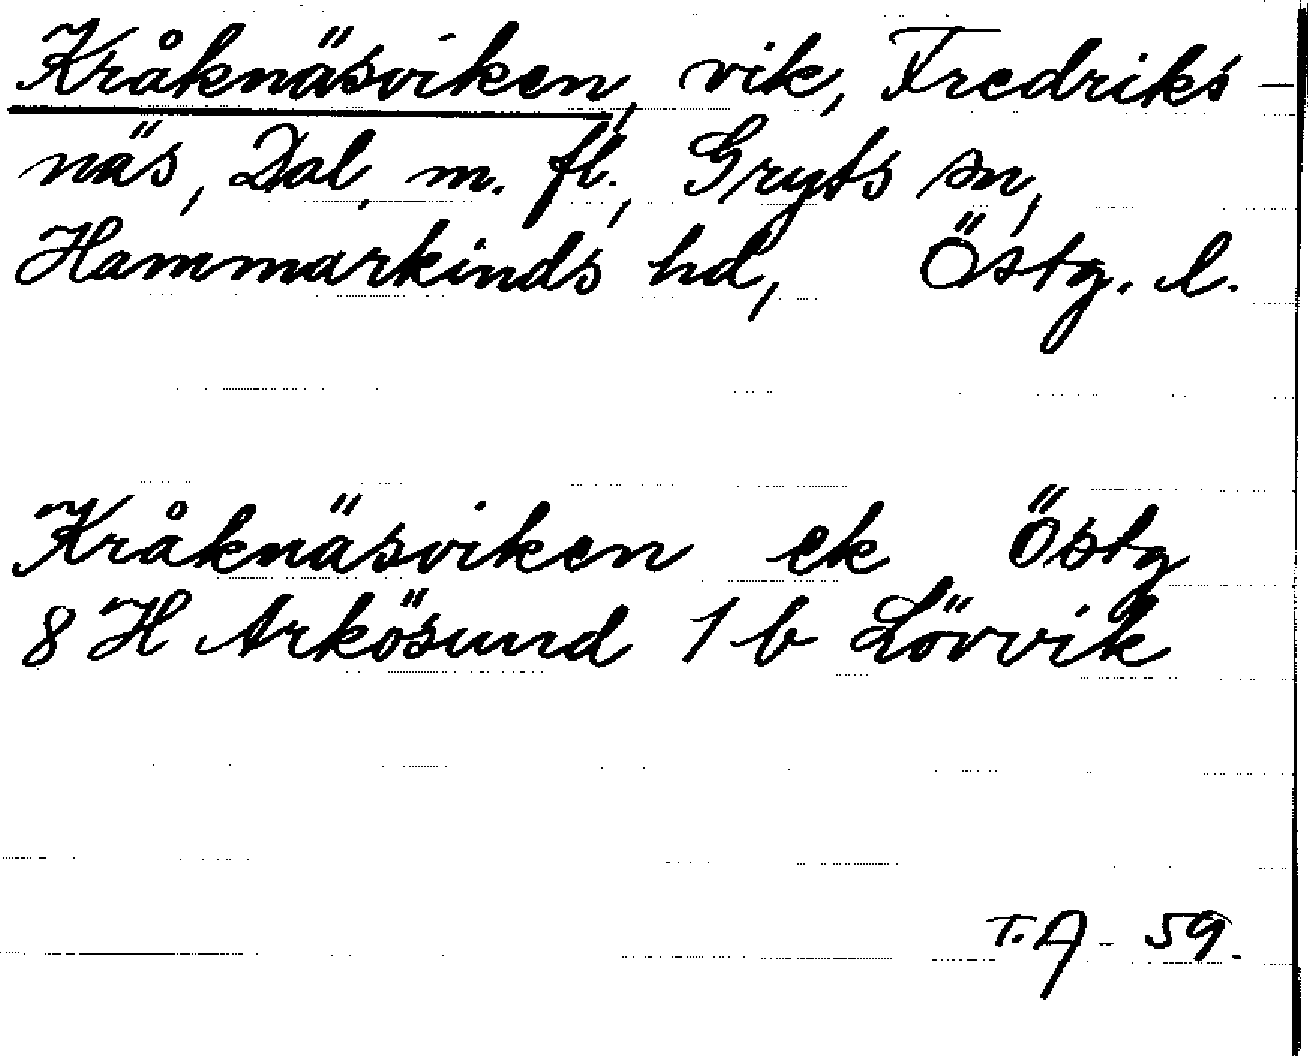 Kråknäsviken, vik, Fredriks-
näs, Dal, m. fl., Gryts sn,
Hammarkinds hd, Östg. l.
Kråknäsviken ek Östg
8 H Arkösund 1 b Lövvik
T.A - 59.